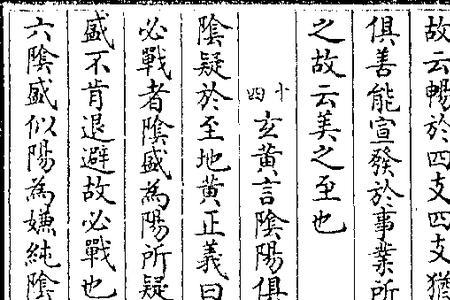 故云暢於四支四支猶
俱善能宣發於事業所
之故云美之至也
十四
玄黃言隂陽俱
隂疑於至地黃正義曰
必戰者隂盛為陽所疑
盛不肯退避故必戰也
六隂盛似陽為嫌純隂